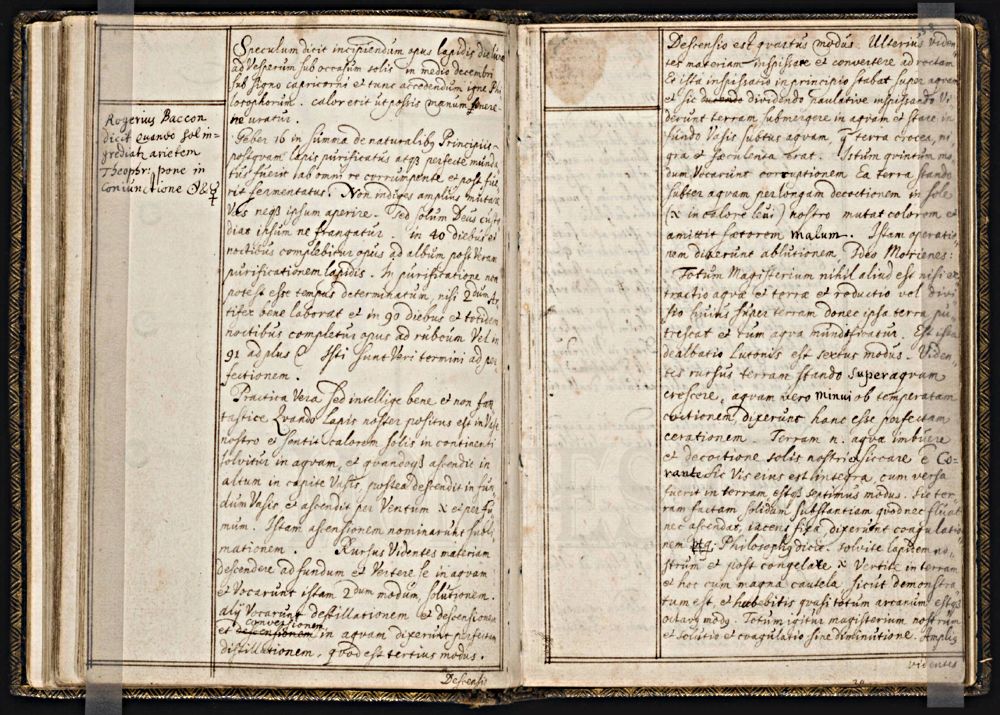 Speculum dicit incipiendum opus lapidis
ad Vesperum sub occasum solis in medio decembri
sub signo capricorni et tunc accedendum igne Phi
losophorum. calor erit ut possis manum
ne uratur.
Rogerius Baccon
dicit quando sol in-
grediatur arietem
Theophr: pone in
Coniunctione ☉ & ☿
Geber 16 in summa de naturalibq Principiis
postquam lapis purificatus atqз perfecte munda
tus fuerit ab omni re corrumpente et post fue
rit fermentatus. Non indiges amplius mutare
Vas neqз ipsum aperire. Sed solum Deus custo
diat ipsum ne frangatur. in 40 diebus et
noctibus complebitur opus ad album post Veram
purificationem lapidis. In purificatione non
potest esse tempus determinatum, nisi 2dum Ar
tifex bene laborat et in 90 diebus et totidem
noctibus completur opus ad rubeum Vel in
91 ad plus Isti sunt Veri termini ad per
fectionem.
Practica Vera sed intellige bene et non fan
tastice Quando Lapis noster positus est in Vase
nostro et sentit calorem solis in continenti
solvitur in aqvam, et qvandoqз ascendit in
altum in capite Vasis, postea descendit in fun
dum Vasis et ascendit per Ventum x et per fu
mum. Istam asensionem nominarunt subli
mationem. Rursus Videntes materiam
descendere ad fundum et Vertere se in aqvam
et Vocarunt istam 2dum modum solutionem.
alÿ Vocarunt destillationem et descensionem
conversionem
et descensionem in aqvam dixerunt perfectam
distillationem. qvod est tertius modus.
Descensio
Descensio est qvartus modus. Ulterius viden
tes materiam inspissare et convertere ad
Et ista inspissatio in principio stabat super aqvam
et sic ducendo dividendo paulative inspissando Vi
derunt terram submergere in aqvam et stare in
fundo Vasis subtus aqvam, q terra crocea, ni
gra et fæculenta erat. Istum qvintum mo
dum Vocarunt corruptionem Ea terra stando
subter aqvam per longam decoctionem in sole
(x in calore leui) nostro mutat colorem et
amittit fœtorem malum. Istam operatio
nem dixerunt ablutionem, Ideo Morienes:
Totum Magisterium nihil aliud est nisi ex
tractio aqvæ et terræ et reductio vel divi
sio huius super terram donec ipsa terra pu
trescat et cum aqva mundificatur. Est ista
dealbatio Lutonis est sextus modus. Viden
tes rursus terram stando super aqvam
crescere, aqvam vero minui ob temperatam
coctionem dixerunt hanc esse perfectam
cerationem Terram n. aqva imbuere
et decoctione solis nostri siccare
sic Vis eius est integra cum versa
fuerit in terram, estqз septimus modus. sic ter
ram factam solidum substantiam qvod nec fluat
nec ascendat, iacens fixa dixerunt coagulatio
nem Philosophÿ dicunt. solvite lapidem no
strum et post congelate x Vertite in terram
et hoc cum magna cautela sicut demonstra
tum est, et habebitis qvasi totum arcanum estqз
octavus modus. Totum igitur magisterium nostrum
et solutio et coagulatio sine diminutione. Amplius
videntes